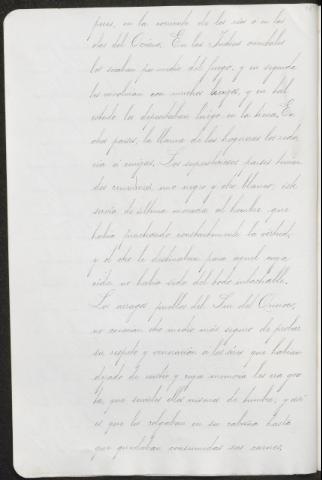 peces, en la corriente de los ríos ó en las
das del Océano. En las Indias orientales
los secaban por medio del fuego, y en seguida
los envolvian con muchos lienzos, y en tal
estado la depositaban luego en la tierra. En
otros paises, la llama de las hogueras los redu
cia á cenizas. Los supersticiosos parsis tenían
dos cementerios, uno negro y otro blanco; este
servía de última morada al hombre que
había practicado constantemente la virtud,
y el otro le destinaban para aquel cuya
vida no había sido del todo intachable.
Los araguas, pueblos del Sur del Orinoco,
no conocian otro medio más seguro de probar
su respeto y veneracion a los séres que habian
dejado de existir y cuya memoria les era gra
ta, que servirles ellos mismos de tumba; y así
es que los colgaban en su cabaña hasta
que quedaban consumidas sus carnes,